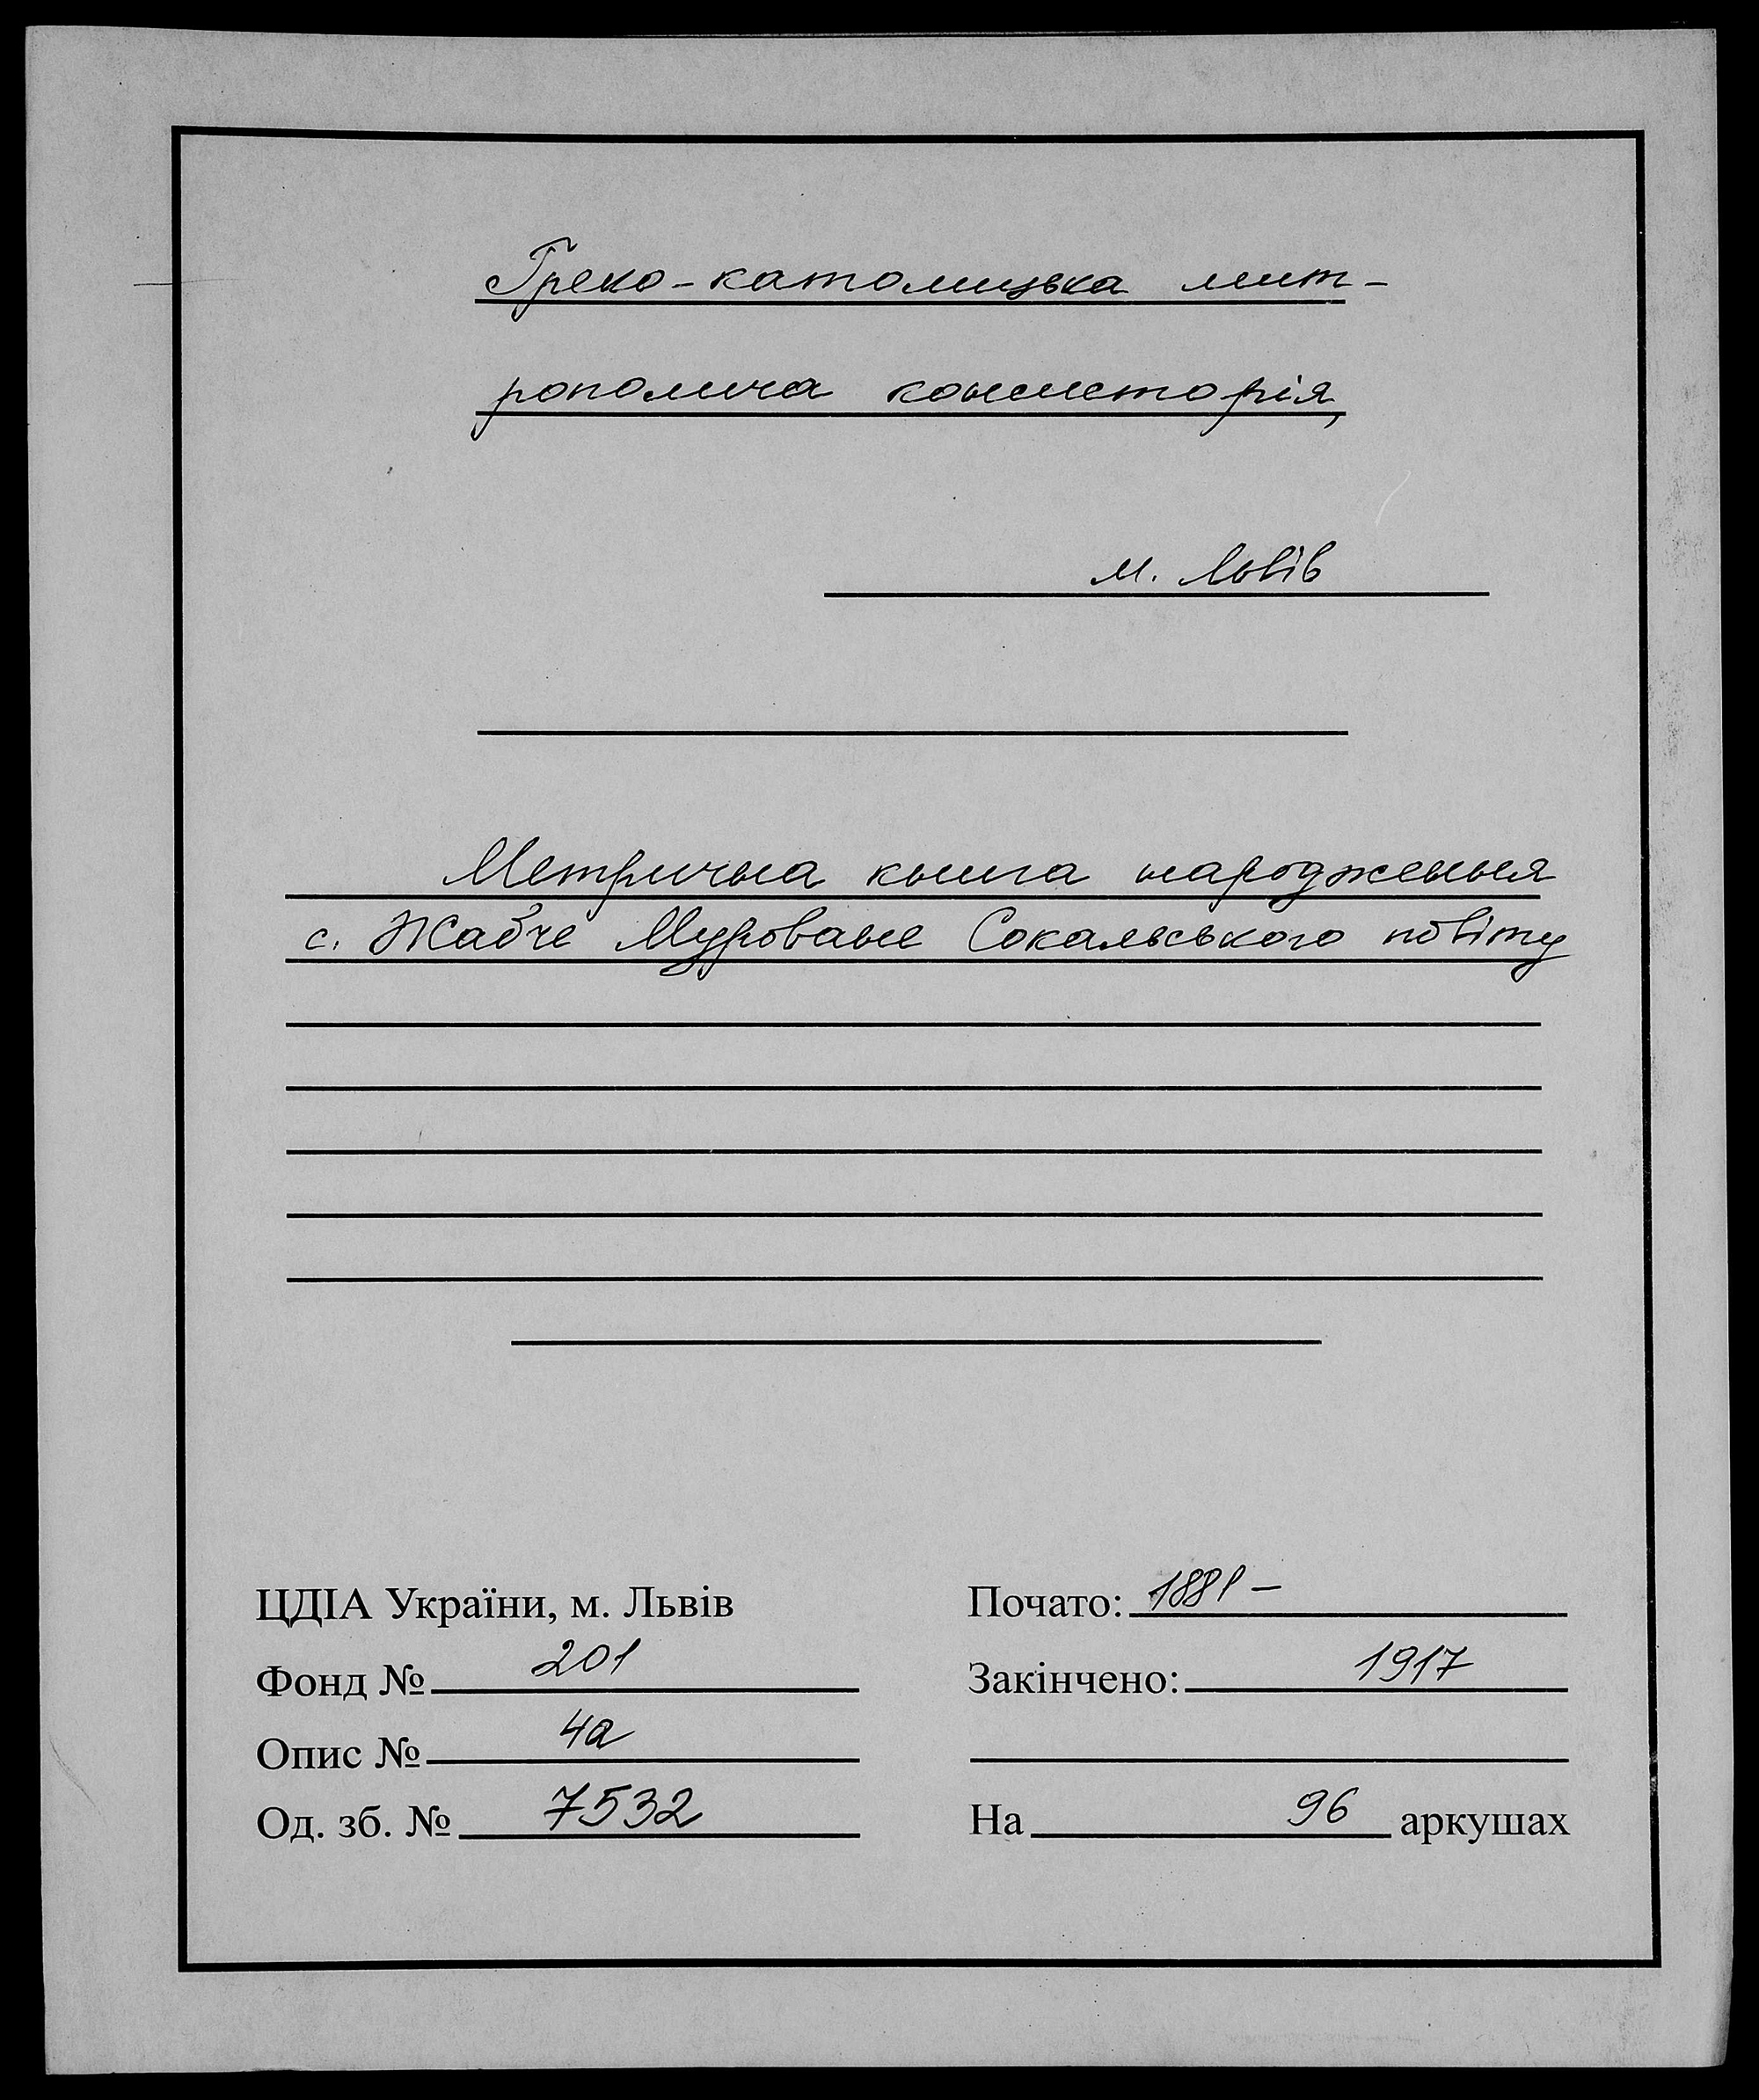 Греко-католицька мит-
рополича консисторія,
м. Львів
Метрична книга народження
с. Жабче Муроване Сокальського повіту
ЦДІА України, м. Львів
Фонд № 201
Опис № 4а
Од. зб. № 7532
Почато: 1881 –
Закінчено: 1917
На 96 аркушах